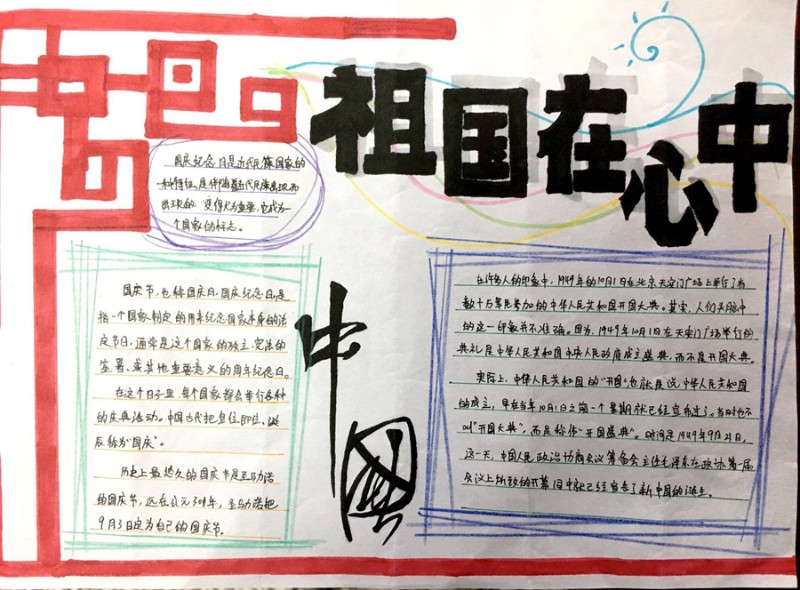 祖国在心中
国庆纪念日是近代民族国家的
一种特征,是伴随着近代民族国家而
出现的,变得尤为重要,它成为
一个国家的标志。
国庆节,也称国庆日,国庆纪念日,是
指一个国家制定的用来纪念国家本身的法
定节日。通常是这个国家的独立、宪法的
签署、或其他重要意义的周年纪念日。
在这个日子里,每个国家都会举行各种
的庆典活动。中国古代把皇位即位、诞
辰称为"国庆"。
历史上最悠久的国庆节是圣马力诺
的国庆节,远在公元301年,圣马力诺把
9月3日定为自己的国庆节。
中国
在许多人的印象中,1949年的10月1日在北京天安门广场上举行了有
数十万军民参加的中华人民共和国开国大典。其实,人们头脑中
的这一印象并不准确。因为,1949年10月1日在天安门广场举行的
典礼是中华人民共和国中央人民政府成立盛典,而不是开国大典。
实际上,中华人民共和国的"开国",也就是说,中华人民共和国
的成立,早在当年10月1日之前一个星期就已经宣布过了。当时也不
叫"开国大典",而是称作"开国盛典"。时间是1949年9月21日。
这一天,中国人民政治协商会议筹备会主任毛泽东在政协第一届
会议上所致的开幕词中就已经宣告了新中国的诞生。